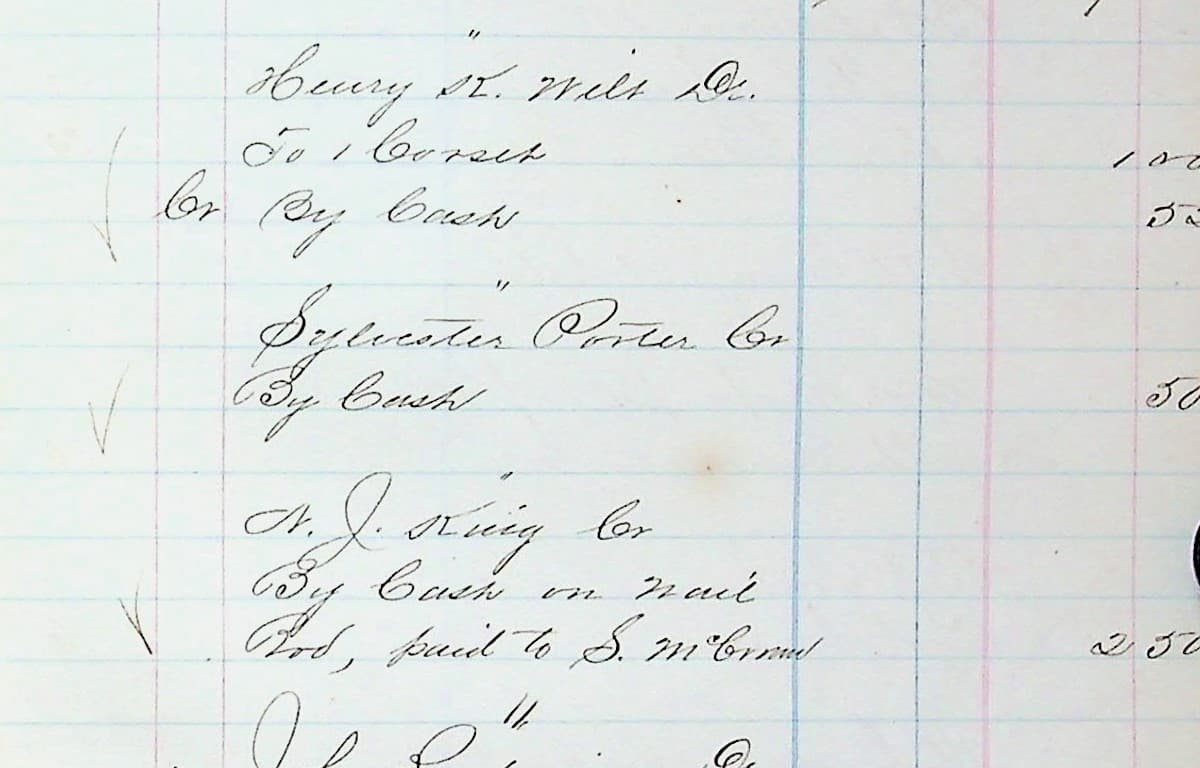 "
Henry K. Wilt Dr.
To 1 Corset 1 00
Cr By Cash 52
"
Sylvester Porter Cr
By Cash 50
"
N. J. King Cr
By Cash on nail
Rod, paid to S. 2 50
"
Dr